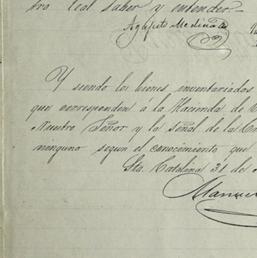 tro leal saber y entender.
Agapito Medina
Y siendo los bienes inventariados
que corresponden á la Hacienda de
Nuestro Señor y la señal de la
ninguno segun el conocimiento que
Sta. Catalina 31 de
Manuel